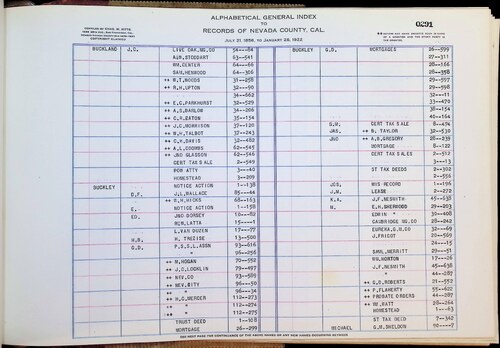 ALPHABETICAL GENERAL INDEX
TO
RECORDS OF NEVADA COUNTY, CAL.
JULY 21, 1856, to JANUARY 28, 1922
0291
COPYRIGHT CLAIMED
BUCKLAND J.C. LIVE OAK MG CO 54—84
ALM. STODDART 63—541
WM. CENTER 64—66
SAML HENWOOD 64—306
++ W.T. WOODS 31—258
++ R.H. UPTON 32—90
34—662
++ E.C. PARKHURST 32—529
++ A.S. BARLOW 34—268
++ O.M. EATON 35—154
++ J.C. MORRISON 37—120
++ W.H. TALBOT 37—243
++ O.H. DAVIS 32—482
++ A.L. COOMBS 62—545
++ JNO GLASSON 62—546
CERT TAX SALE 2—549
POW ATTY 3—40
HOMESTEAD 3—209
BUCKLEY NOTICE ACTION 1—138
D.F. J.L. WALLACE 85—44
++ R.H. HICKS 68—163
E. NOTICE ACTION 1—158
ED. JNO DORSEY 16—82
ROB. LATTA 15—1
L. VAN DUZEN 17—77
H.B. H. TREZISE 13—500
G.D. P.S.& L. ASSN 93—616
" 96—256
++ M. HOGAN 70—552
++ J.C. LOCKLIN 79—497
++ NEV. CO 93—509
++ NEV. CITY 96—50
++ " 96—34
++ H.C. WERGER 112—273
++ " 112—274
++ " 112—275
TRUST DEED 1—168
MORTGAGE 26—299
BUCKLEY G.D. MORTGAGES 26—599
27—311
28—166
28—358
29—597
29—598
32—11
33—470
38—154
40—164
G.M. CERT TAX SALE 8—474
JAS. ++ B. TAYLOR 32—530
JNO ++ A.B. GREGORY 28—239
MORTGAGE 8—122
CERT TAX SALES 2—512
3—13
ST TAX DEEDS 2—302
" 2—556
JOS. MIS RECORD 1—196
J.M. LEASE 2—272
K.A. J.F. NESMITH 45—638
M. E.H. SHERWOOD 29—203
EDWIN " 30—408
CAMBRIDGE MG CO 28—242
EUREKA G.M. CO 32—69
J. FRICOT 20—569
24—15
SAML MERRITT 20—51
WM. HORTON 17—26
J.F. NESMITH 45—637
" 44—287
++ G.S. ROBERTS 21—552
++ P. FLAHERTY 55—142
++ PROBATE ORDERS 44—287
++ WM. WATT 28—264
HOMESTEAD 1—63
ST TAX DEED 7—342
MICHAEL G.M. SHELDON 90—7